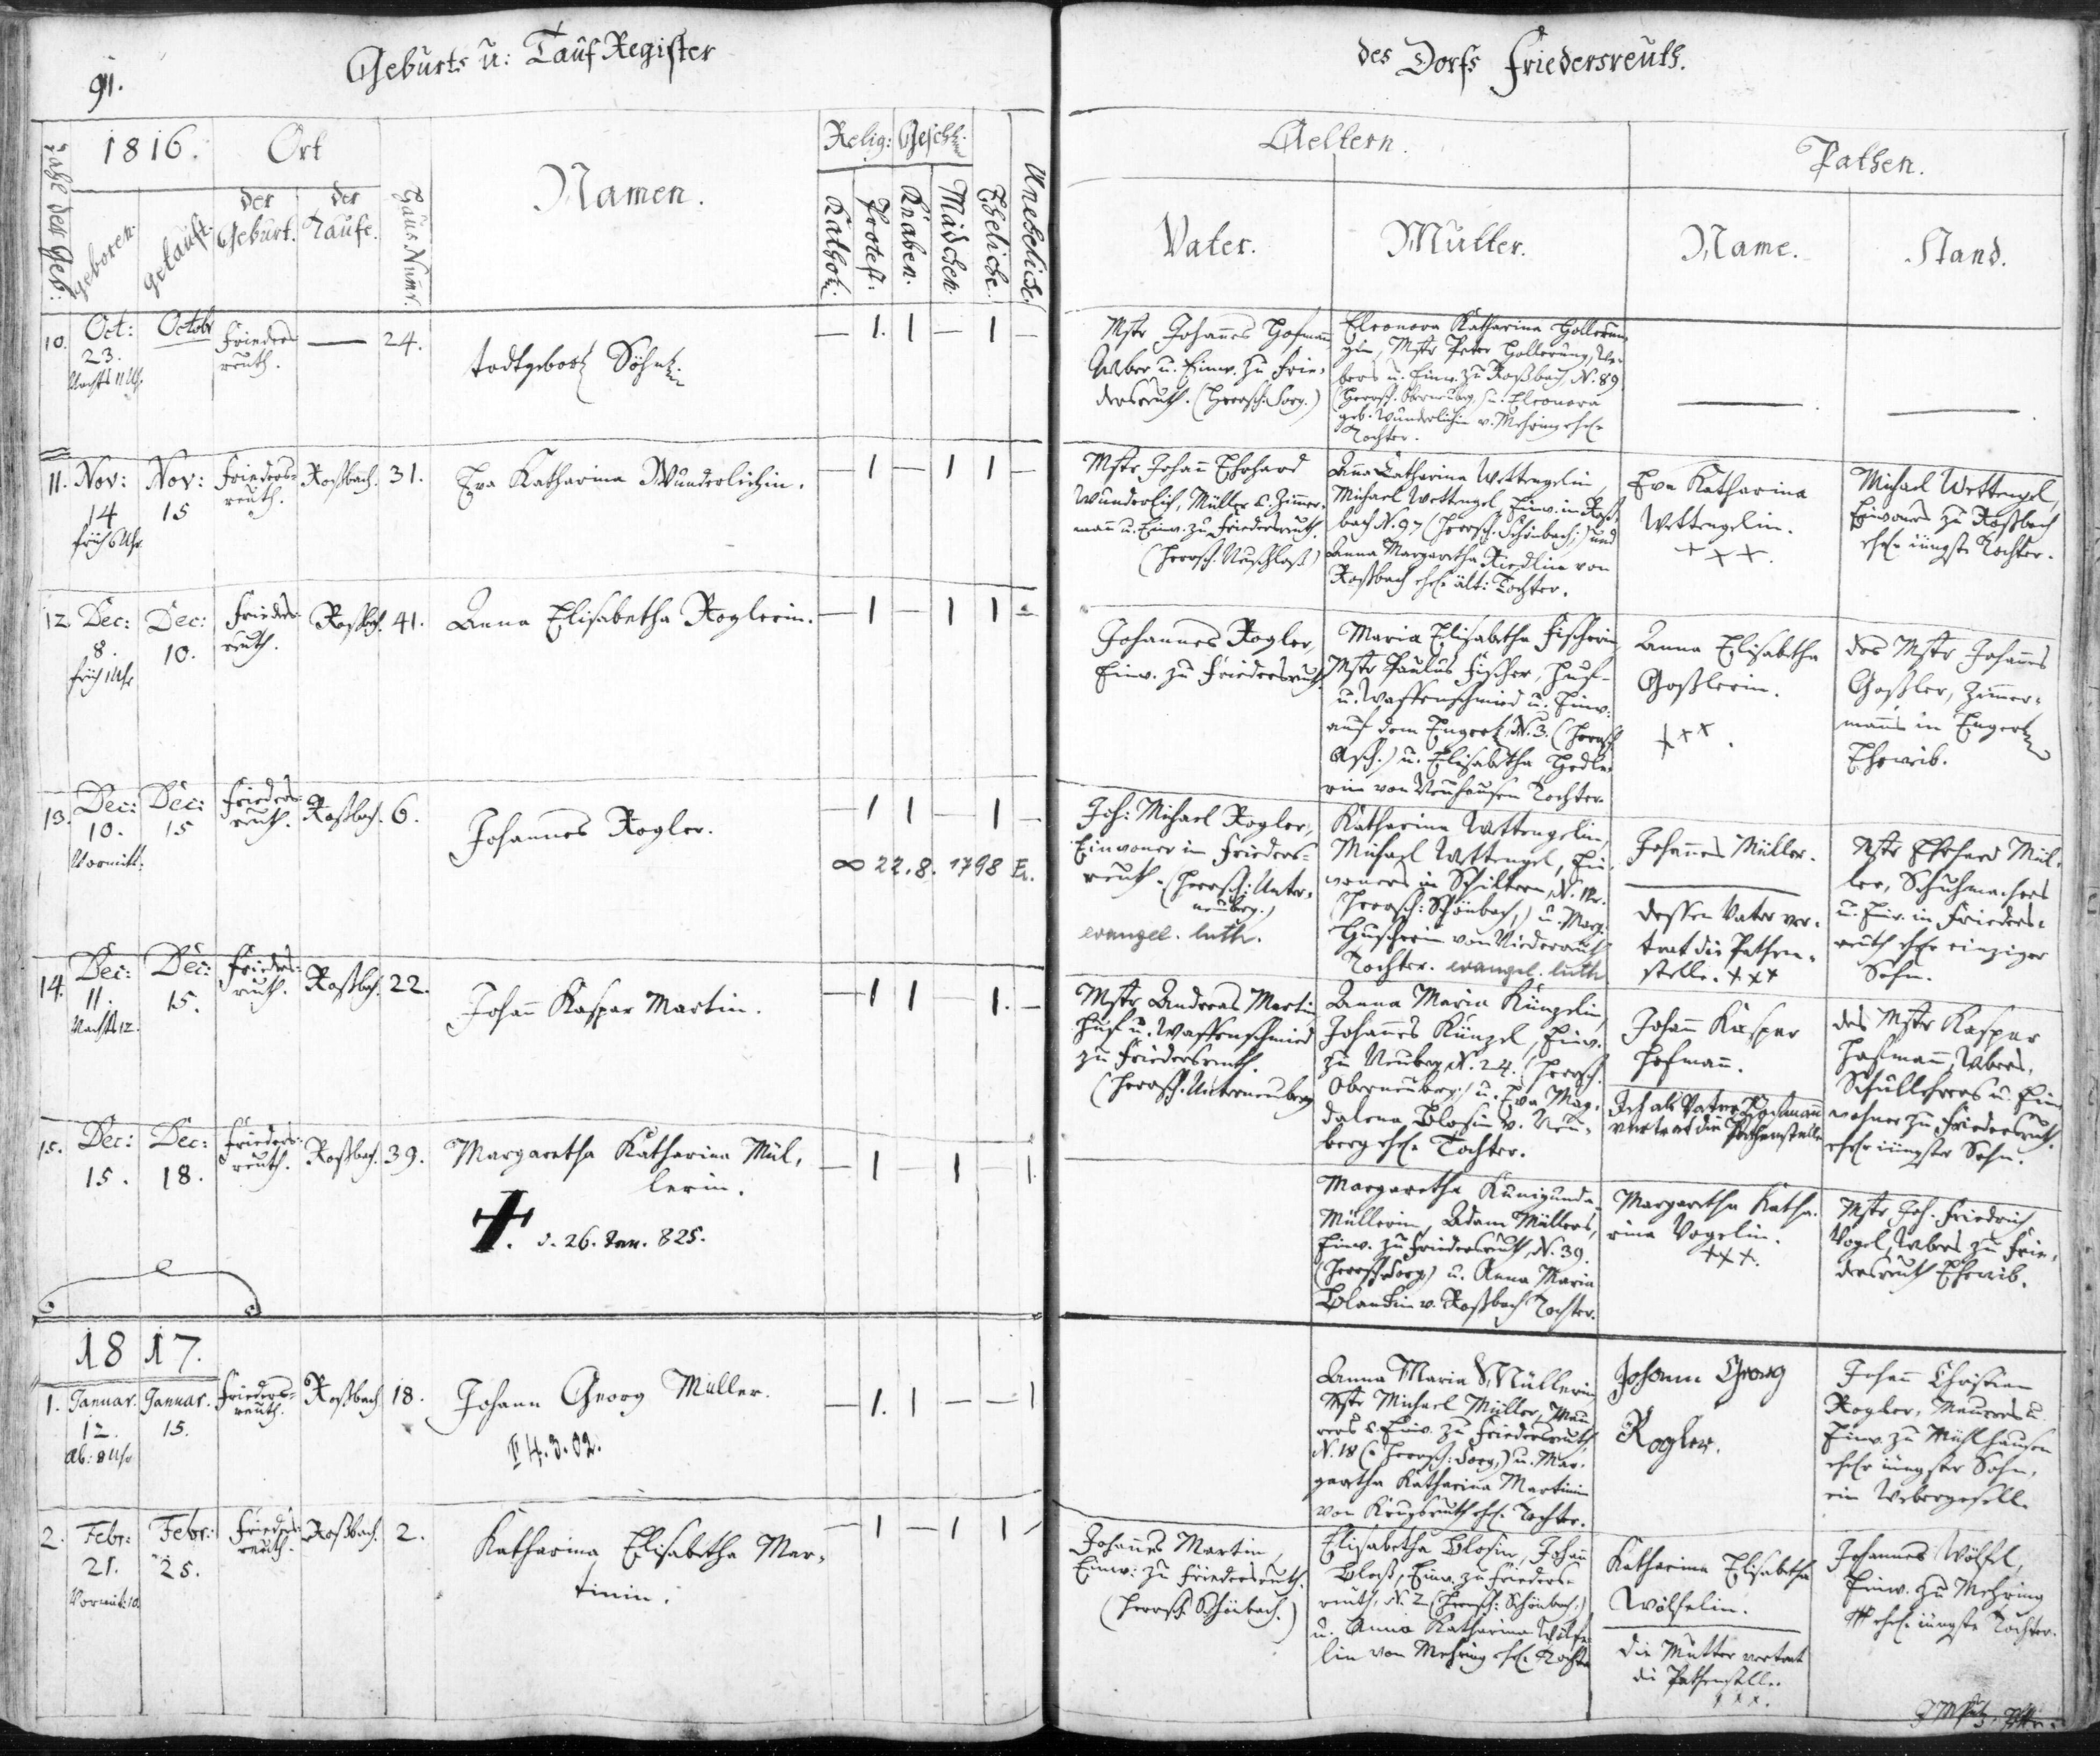 91.
Geburts u: Tauf Register
des Dorfs Friedersreuth.
Zahl der Geb:
1816.
Ort
geboren.
getauft.
der Geburt.
der Taufe.
Haus Numr.
Namen.
Relig:
Geschl:
Kathol:
Protest:
Knaben.
Mädchen.
Eheliche.
Uneheliche.
Aeltern.
Vater.
Mutter.
Pathen.
Name.
Stand.
10.
Oct:
23.
Nachts 11 Uhr.
Octobr
Frieders
reuth.
—
24.
todtgebor Söhnl.
— 1. 1 — 1 —
Mstr Johannes Hofmann
Weber u. Einw. zu Frie-
dersreuth. (Herrsch. Sorg.)
Eleonora Katharina Hollerun-
gin, Mstr Peter Hollerung, We-
bers u. Einw. zu Roßbach, N. 89
(Herrsch. Oberneuberg,) u. Eleonora
geb. Wunderlichin v. Mehring ehel.
Tochter.
—
—
11.
Nov:
14
früh 6 Uhr
Nov:
15
Frieders-
reuth.
Roßbach.
31.
Eva Katharina Wunderlichin.
— 1 — 1 1 —
Mstr Johann Erhard
Wunderlich, Müller u. Zimmer-
mann u. Einw. zu Friedersreuth.
(Herrsch. Neuschloß)
Anna Catharina Wettengelin,
Michael Wettengel, Einw. in Roß-
bach N. 97 (Herrsch. Schönbach,) und
Anna Margaretha Riedlin von
Roßbach ehel. ält: Tochter.
Eva Katharina
Wettengelin.
+ + +.
Michael Wettengel,
Einwoners zu Roßbach
ehel. jüngste Tochter.
12.
Dec:
8.
früh 1 Uhr
Dec:
10.
Frieders-
reuth.
Roßbch.
41.
Anna Elisabetha Roglerin.
— 1 — 1 1 —
Johannes Rogler,
Einw. zu Friedersreuth.
Maria Elisabetha Fischerin,
Mstr Paulus Fischer, Huf-
u. Waffenschmied u. Einw.
auf dem Engert, N. 3. (Herrsch.
Asch.) u. Elisabetha Hedle-
rin von Neuhausen Tochter.
Anna Elisabetha
Goßlerin.
+++.
des Mstr Johannes
Goßler, Zimmer-
manns in Engert
Eheweib.
13.
Dec:
10.
Vormitt:
Dec:
15
Frieders-
reuth.
Roßbach.
6.
Johannes Rogler.
— 1 1 — 1 —
∞ 22.8.1798 E.
Joh: Michael Rogler,
Einwoner in Frieders-
reuth. (Herrsch: Unter-
neuberg.)
evangel. luth.
Katharina Wettengelin,
Michael Wettengel, Ein-
woners in Schildern, N. 12.
(Herrsch: Schönbach,) u. Marg.
von Niederreuth
Tochter. evangel. luth
Johannes Müller.
dessen Vater ver-
trat die Pathen-
stelle. +++
Mstr Erhard Mül-
ler, Schuhmachers
u. Einw. in Frieders-
reuth ehel. einziger
Sohn.
14.
Dec:
11.
Nachts 12.
Dec:
15.
Frieders-
reuth.
Roßbch.
22.
Johann Kaspar Martin.
— 1 1 — 1. —
Mstr Andreas Martin
Huf u. Waffenschmied
zu Friedersreuth.
(Herrsch. Unterneuberg
Anna Maria Künzelin,
Johannes Künzel, Einw.
zu Neuberg, N. 24. (Herrsch.
Oberneuberg,) u. Eva Mag-
dalena Bloßin v. Neu-
berg ehel. Tochter.
Johann Kaspar
Hofmann.
Ich als Vater Hofmann
vertrat die Pathenstelle
des Mstr Kaspar
Hofmann, Webers,
Schullehrers u. Ein-
wohner zu Friedersreuth.
ehel. jüngster Sohn.
15.
Dec:
15.
Dec:
18.
Frieders-
reuth.
Roßbach.
39.
Margaretha Katharina Mül-
lerin.
— 1 — 1 — 1.
+. d. 26. Jan. 825.
Margaretha Kunigunda
Müllerin, Adam Müllers,
Einw. zu Friedersreuth, N. 39.
(Herrsch. Sorg) u. Anna Maria
v. Roßbach Tochter.
Margaretha Katha-
rina Vogelin.
+++.
Mstr Joh. Friedrich
Vogel, Webers zu Frie-
dersreuth Eheweib.
1817.
1.
Januar.
12.
Ab: 8 Uhr
Januar.
15.
Frieders-
reuth.
Roßbach
18.
Johann Georg Müller.
— 1. 1 — — 1
4.3.02.
Anna Maria Müllerin,
Mstr Michael Müller, Mau-
rers u. Einw. zu Friedersreuth,
N. 18 (Herrsch: Sorg,) u. Mar-
garetha Katharina Martinin
von Krugsreuth ehel. Tochter.
Johann Georg
Rogler.
Johann Christian
Rogler, Maurers u.
Einw. zu Mühlhausen
ehel. jüngster Sohn,
ein Webergesell.
2.
Febr:
21.
Vormit: 10
Febr:
25.
Frieders-
reuth.
Roßbach.
2.
Katharina Elisabetha Mar-
tinin.
— 1 — 1 1 —
Johannes Martin,
Einw: zu Friedersreuth.
(Herrsch. Schönbach.)
Elisabetha Bloßin, Johann
Bloß, Einw. zu Frieders-
reuth, N. 2 (Herrsch: Schönbach,)
u. Anna Katharina Wölfe-
lin von Mehring ehel. Tochter
Katharina Elisabetha
Wölfelin.
Die Mutter vertrat
die Pathenstelle.
+ + +.
Johannes Wölfel,
Einw. zu Mehring
ehel. jüngste Tochter.